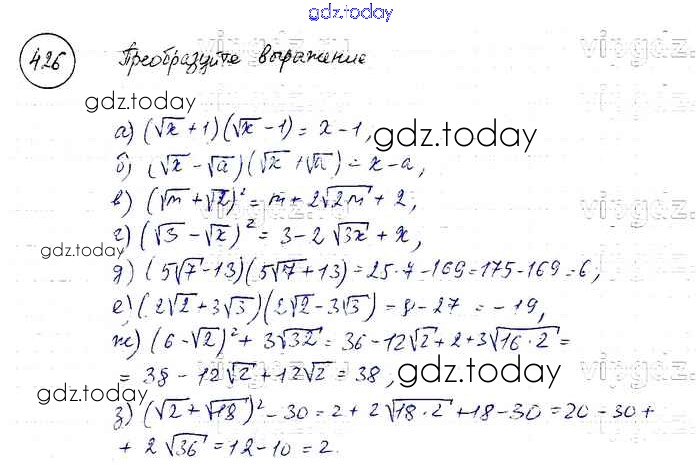 gdz.today
426 Преобразуйте выражение
gdz.today
а) (√x + 1)(√x - 1) = x - 1,
gdz.today
б) (√x - √a)(√x + √a) = x - a,
в) (√m + √2)² = m + 2√2m + 2,
г) (√3 - √x)² = 3 - 2√3x + x,
gdz.today
д) (5√7 - 13)(5√7 + 13) = 25·7 - 169 = 175 - 169 = 6,
е) (2√2 + 3√3)(2√2 - 3√3) = 8 - 27 = -19,
ж) (6 - √2)² + 3√32 = 36 - 12√2 + 2 + 3√16·2 =
= 38 - 12√2 + 12√2 = 38,
gdz.today
gdz.today
з) (√2 + √18)² - 30 = 2 + 2√18·2 + 18 - 30 = 20 - 30 +
+ 2√36 = 12 - 10 = 2.